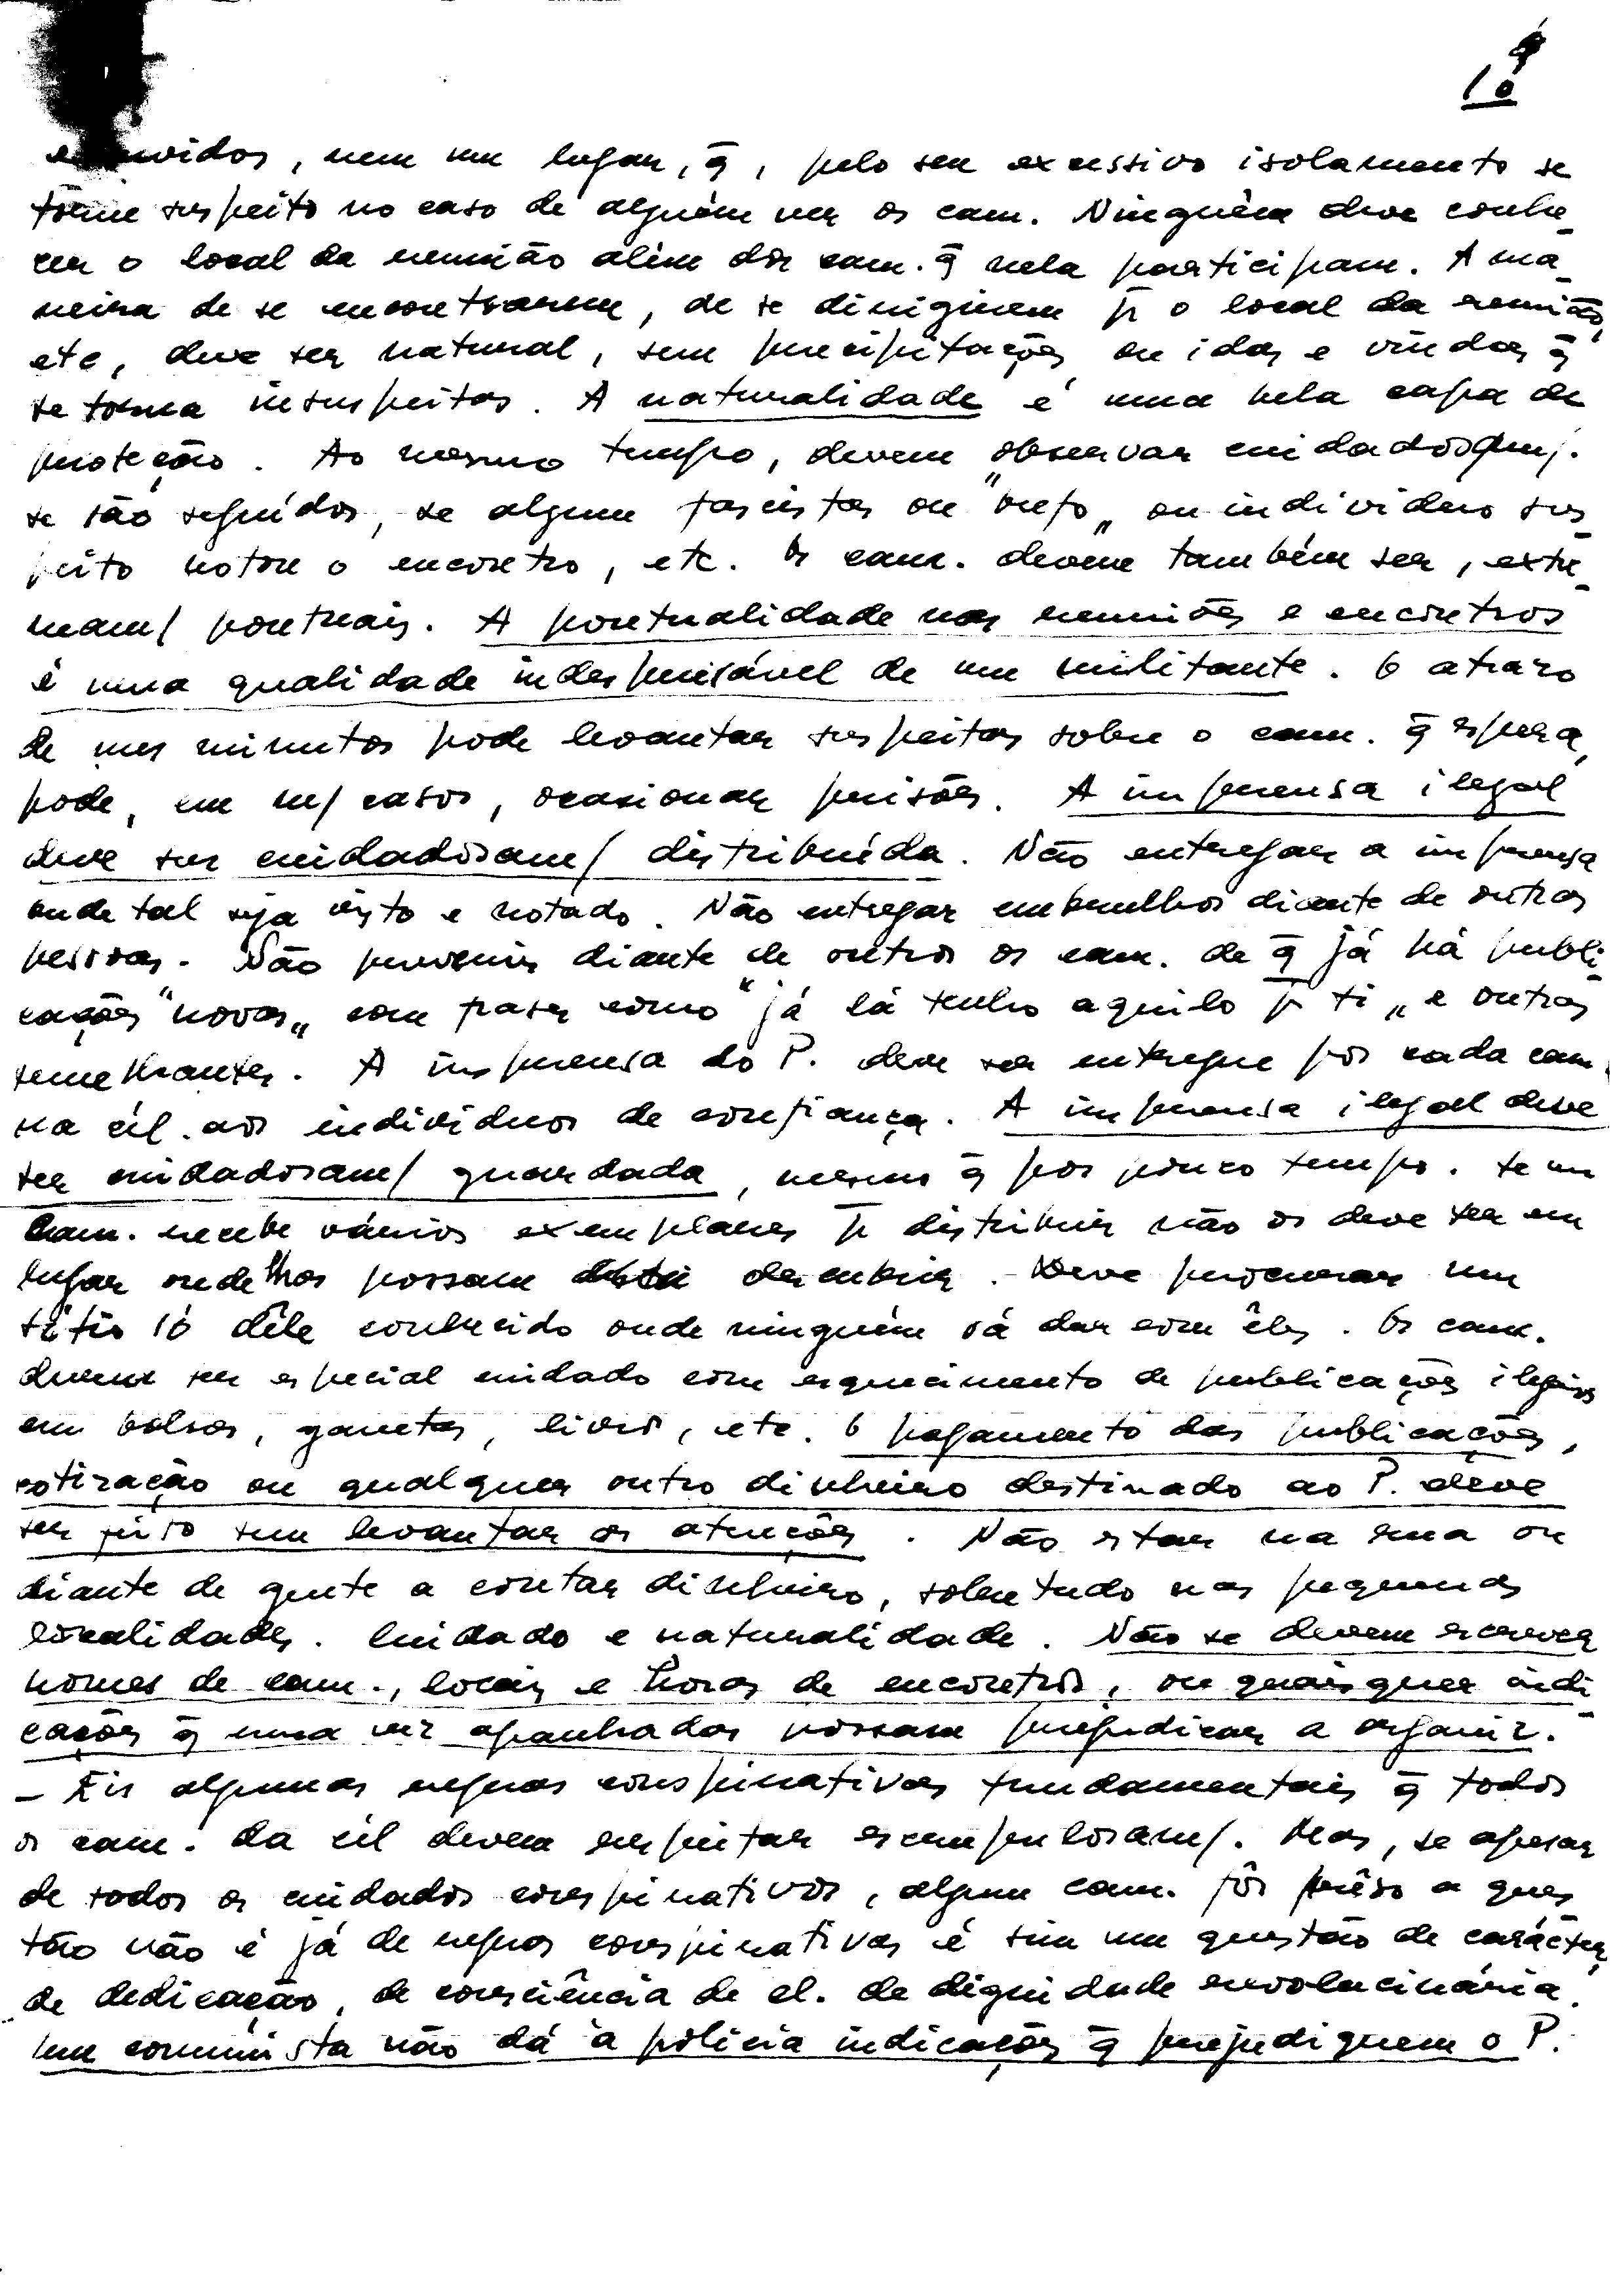 10
ouvidos, nem um lugar, q̄, pelo seu excessivo isolamento se
tôrne suspeito no caso de alguém ver os cam. Ninguém deve conhe-
cer o local da reunião além dos cam. q̄ nela participam. A ma-
neira de se encontrarem, de se dirigirem p̄ o local da reunião,
etc, deve ser natural, sem precipitações ou idas e vindas q̄
se torna insuspeitas. A naturalidade é uma bela capa de
proteção. Ao mesmo tempo, devem observar cuidadosam/.
se são seguídos, se algum fascista ou "bufo„ ou indivíduo sus-
peito notou o encontro, etc. Os cam. devem também ser, extre-
mam/ pontuais. A pontualidade nas reuniões e encontros
é uma qualidade indespensável de um militante. O atrazo
de uns minutos pode levantar suspeitas sobre o cam. q̄ espera,
pode, em m/ casos, ocasionar prisões. A imprensa ilegal
deve ser cuidadosam/ distribuída. Não entregar a imprensa
onde tal seja visto e notado. Não entregar embrulhos diante de outras
pessoas. Não prevenir diante de outros os cam. de q̄ já há publi-
cações "novas„ com frases como "já lá tenho aquilo p̄ ti„ e outras
semelhantes. A imprensa do P. deve ser entregue por cada cam.
na cél. aos indivíduos de confiança. A imprensa ilegal deve
ser cuidadosam/ guardada, mesmo q̄ por pouco tempo. Se um
cam. recebe vários exemplares p̄ distribuir não os deve ter em
lugar onde lhos possam descubrir. Deve procurar um
sítio só dêle conhecido onde ninguém vá dar com êles. Os cam.
devem ter especial cuidado com esquecimento de publicações ilegais
em bolsos, gavetas, livros, etc. O pagamento das publicações,
cotização ou qualquer outro dinheiro destinado ao P. deve
ser feito sem levantar as atenções. Não estar na rua ou
diante de gente a contar dinheiro, sobretudo nas pequenas
localidades. Cuidado e naturalidade. Não se devem escrever
nomes de cam., locais e horas de encontros, ou quaisquer indi-
cações q̄ uma vez apanhadas possam prejudicar a organiz.
- Eis algumas regras conspirativas fundamentais q̄ todos
os cam. da cél devem respeitar escrupulosam/. Mas, se apesar
de todos os cuidados conspirativos, algum cam. fôr prêso a ques
tão não é já de regras conspirativas é sim um questão de carácter,
de dedicação, de consciência de cl. de dignidade revolucinária.
Um comunista não dá à polícia indicações q̄ prejudiquem o P.